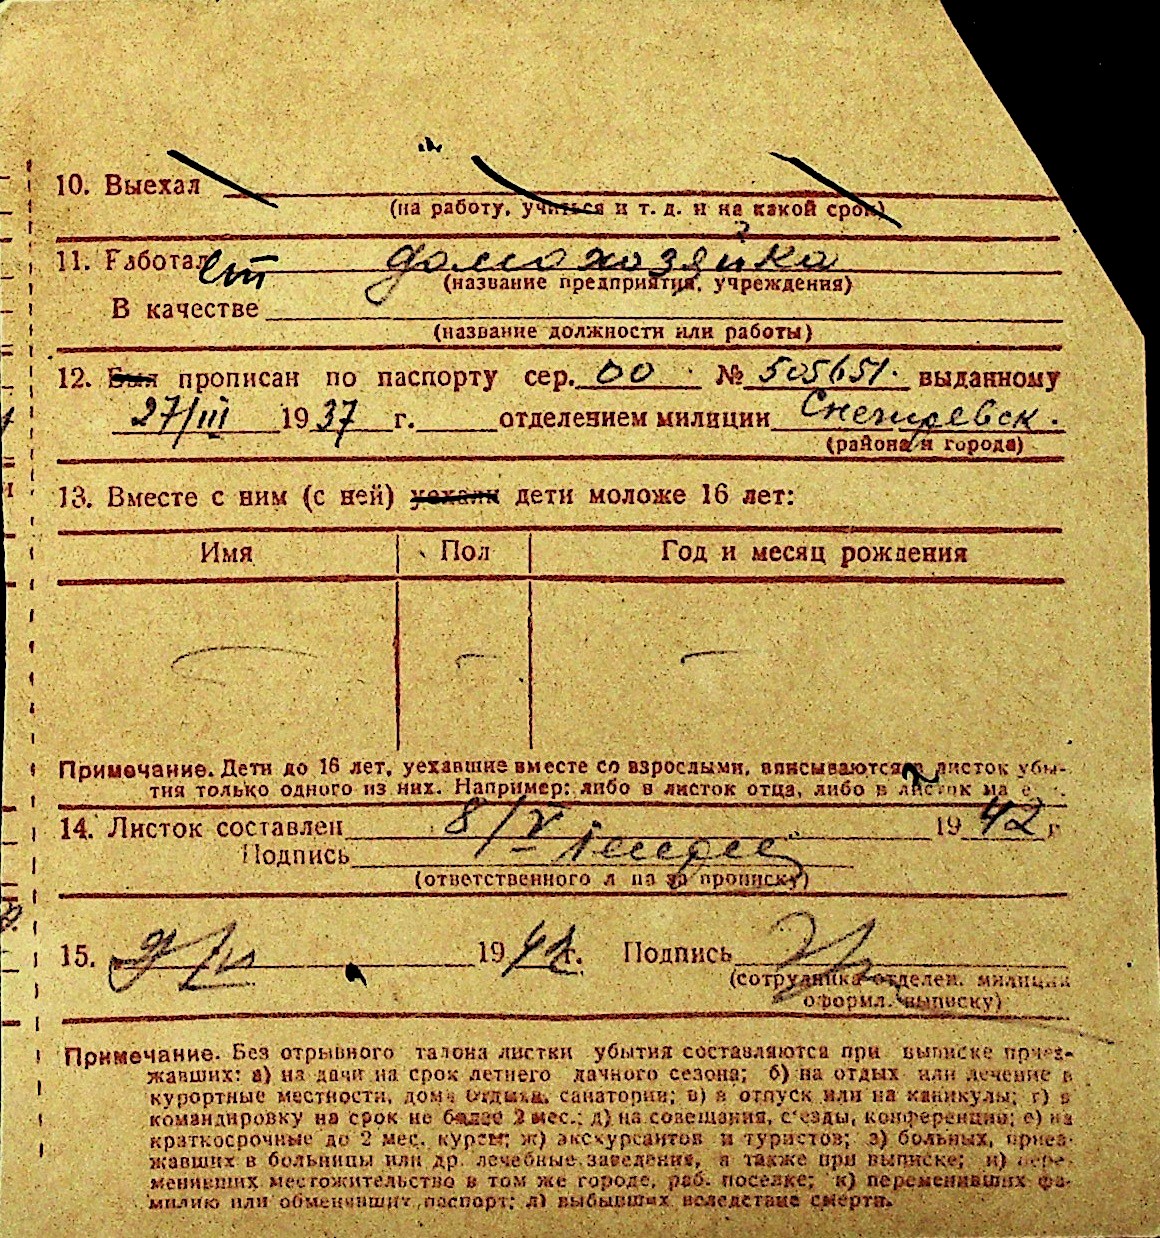 10. Выехал
(на работу, учиться и т. д. и на какой срок)
11. Работал ет домохозяйка
(название предприятия, учреждения)
В качестве
(название должности или работы)
12. Был прописан по паспорту сер. 00 № 505651. выданному
27/III 1937 г. отделением милиции Снегиревск.
(района и города)
13. Вместе с ним (с ней) уехали дети моложе 16 лет:
Имя Пол Год и месяц рождения
Примечание. Дети до 16 лет, уехавшие вместе со взрослыми, вписываются в листок убы-
тия только одного из них. Например: либо в листок отца, либо в листок ма
14. Листок составлен 8/V 1942 г
Подпись
(ответственного л ца за прописку)
15. 1942 г. Подпись
(сотрудника отделен. милиции
оформл. выписку)
Примечание. Без отрывного талона листки убытия составляются при выписке приез-
жавших: а) на дачи на срок летнего дачного сезона; б) на отдых или лечение в
курортные местности, дома отдыха, санатории; в) в отпуск или на каникулы; г) в
командировку на срок не более 2 мес.; д) на совещания, съезды, конференции; е) на
краткосрочные до 2 мес. курсы; ж) экскурсантов и туристов; з) больных, приез-
жавших в больницы или др. лечебные заведения, а также при выписке; и) пере-
менивших местожительство в том же городе, раб. поселке; к) переменивших фа-
милию или обменявших паспорт; л) выбывших вследствие смерти.